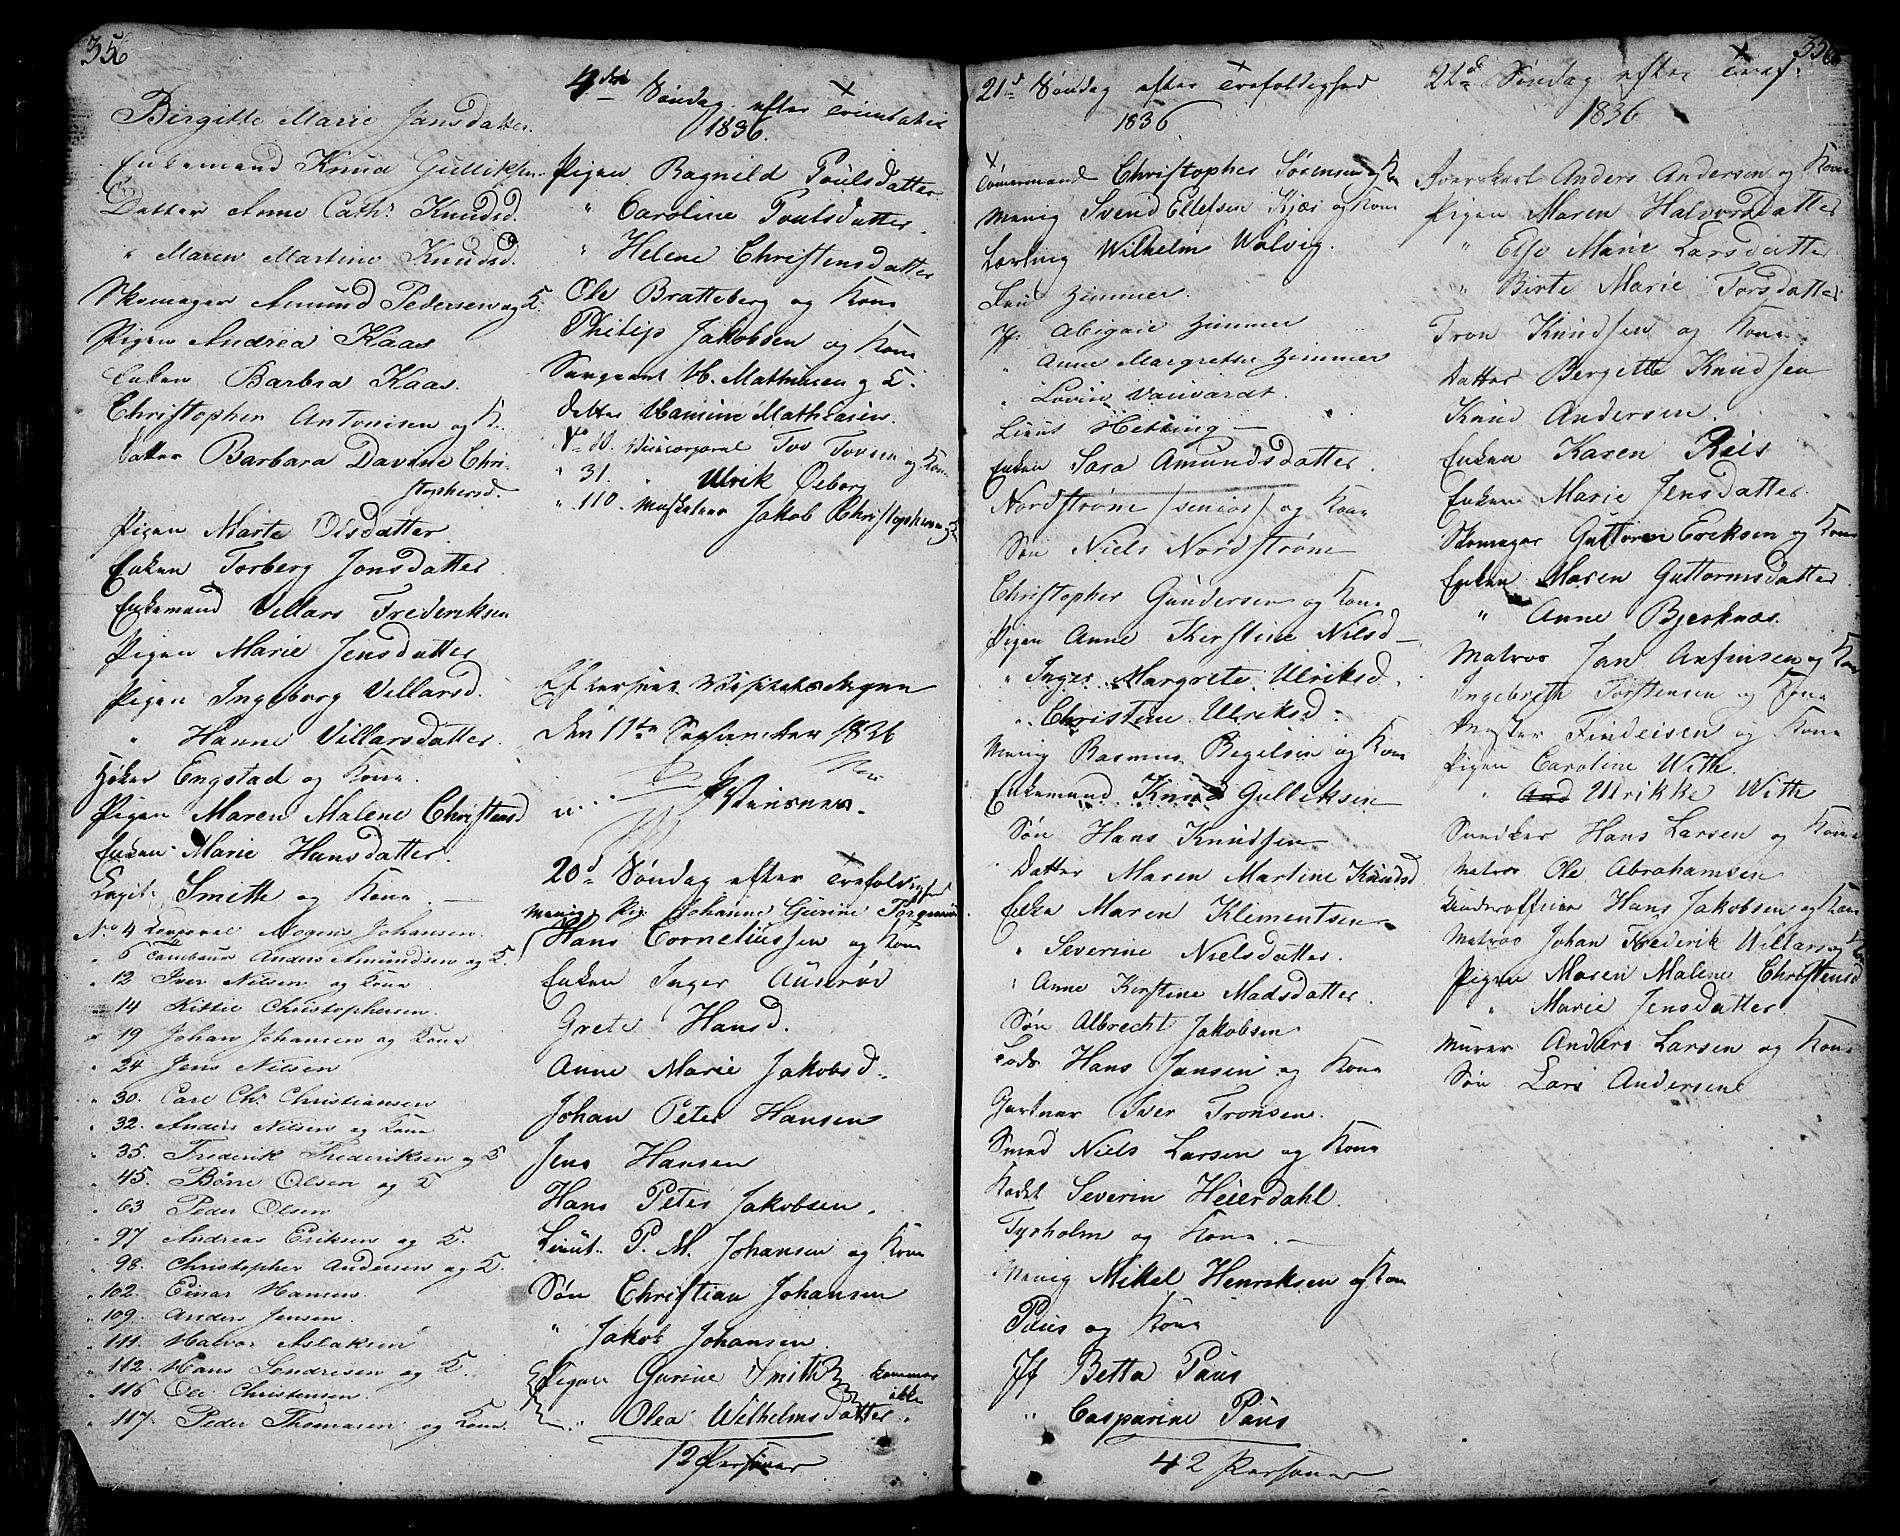 356
Birgitte Marie Jansdatter.
Enkemand Knud Gulliksen
Datter Anne Cath: Knudsd.
" Maren Martine Knudsd.
Skomager Amund Pedersen og K.
Pigen Andrea Kaas
Enken Barbra Kaas.
Christopher Antonisen og K.
Datter Barbara Davine Chri-
stophersd.
Pigen Marte Olsdatter
Enken Torberg Jonsdatter
Enkemand Villars Frederiksen
Pigen Marie Jensdatter
Pigen Ingeborg Villarsd.
" Hanne Villarsdatter.
Høker Engstad og Kone.
Pigen Maren Malene Christensd
Enken Marie Hansdatter.
Capit: Smith og Kone.
No 4 Corporal Mogens Johansen.
" 6 Tambour Anders Amundsen og K
" 12 Iver Nilsen og Kone
" 14 Kittil Christophersen.
" 19 Johan Johansen og Kone
" 24 Jens Nilsen
" 30. Carl Ch: Christiansen
" 32. Anders Nilsen og Kone
" 35. Frederik Frederiksen og K
" 45. Børre Olsen og K
" 63 Peder Olsen
" 97 Andreas Eriksen og K.
" 98. Christopher Andersen og K.
" 102. Einar Hansen.
" 109. Anders Jensen.
" 111. Halvor Aslaksen
" 112. Hans Sendresen og K.
" 116 Ole Christensen.
" 117. Peder Thomasen og Kone.
4de Søndag efter Trinitatis
1836.
Pigen Ragnild Poulsdatter
" Caroline Poulsdatter.
" Helene Christensdatter
Ole Bratteberg og Kone
Philip Jakobsen og Kone
Sergeant H. Mathiasen og K.
Datter Hamine Mathiasen.
No 10. Vicecorporal Tov Tovsen og Kone
" 31. " Ulrik Oeborg
" 110. Musketeer Jakob Christophersen og K
Efterseet Visitats Aarne
den 11te September 1836
20d Søndag efter Trefoldighed
Pig. Johanne Gurine Torgersen
Hans Corneliussen og Kone
Enken Inger Auserød
Grete Hansd.
Anne Marie Jakobsd.
Johan Peter Hansen
Jens Hansen
Hans Peter Jakobsen.
Lieut. P. M. Johansen og Kone
Søn Christian Johansen
" Jakob Johansen
Pigen Gurine Smith kommer
ikke
" Olea Wilhelmsdatter.
12 Personer
356
21d Søndag efter Trefoldighed
1836
Tømermand Christopher Sørensen og Kone
Menig Svend Ellefsen Kjær og Kone
Lærling Wilhelm Walvig.
Zimmer.
Jf: Abigaie Zimmer
" Anne Margrethe Zimmer
" Lovise
Lieut Hetting —
Enken Sara Amundsdatter.
Nordstrøm (senior) og Kone
Søn Niels Nordstrøm
Christopher Gundersen og Kone
Pigen Anne Kirstine Nilsd —
" Inger Margrete Ulriksd.
" Christine Ulriksd.
Menig Rasmus Begelsen og Kone
Enkemand Knud Gulliksen
Søn Hans Knudsen
Datter Maren Martine Knudsd
Enke Maren Klementsen
" Severine Nielsdatter.
" Anne Kirstine Madsdatter.
Søn Albrecht Jakobsen
Lods Hans Jansen og Kone
Gartner Iver Tronsen.
Smed Niels Larsen og Kone
Kadet Severin Heierdahl.
Tyrholm og Kone. —
Menig Mikel Henriksen og Kone
Paus og Kone
Jf Betta Paus
" Casparine Paus
42 Personer
22d Søndag efter Tref:
1836
Anders Andersen og Kone
Pigen Maren Halvorsdatter
" Else Marie Larsdatter
" Birte Marie Torsdatter
Tron Knudsen og Kone
Datter Bergitte Knudsen
Knud Andersen.
Enken Karen Riis
Enken Marie Jensdatter.
Skomager Guttorm Eriksen og Kone
Enken Maren Guttormsdatter.
" Anne Bjerknæs.
Matros Jan Anfinsen og Kone
Ingebreth Torstensen og Kone
Findeisen og Kone
Pigen Caroline With.
" Ulrikke With
Snedker Hans Larsen og Kone
Matros Ole Abrahamsen
Underofficer Hans Jakobsen og Kone
Matros Johan Frederik Villars og K
Pigen Maren Malene Christensd
" Marie Jensdatter.
Murer Anders Larsen og Kone
Søn Lars Andersen